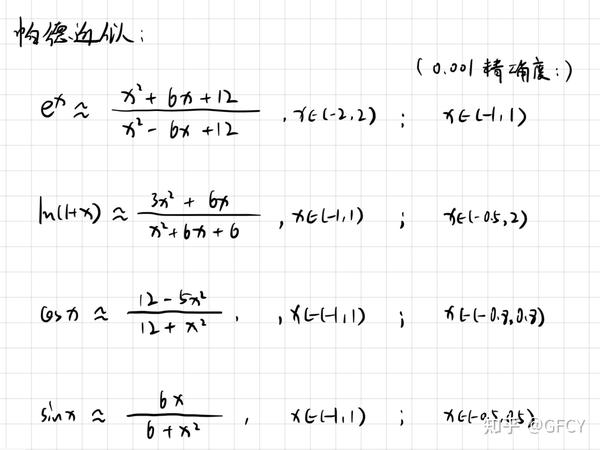 帕德近似:
(0.001 精确度:)
e^x ≈ (x² + 6x + 12)/(x² - 6x + 12) , x∈(-2,2) ; x∈(-1,1)
ln(1+x) ≈ (3x² + 6x)/(x² + 6x + 6) , x∈(-1,1) ; x∈(-0.5,2)
cos x ≈ (12 - 5x²)/(12 + x²) , , x∈(-1,1) ; x∈(-0.8,0.8)
sin x ≈ (6x)/(6 + x²) , x∈(-1,1) ; x∈(-0.5,0.5)
知乎 @GFCY